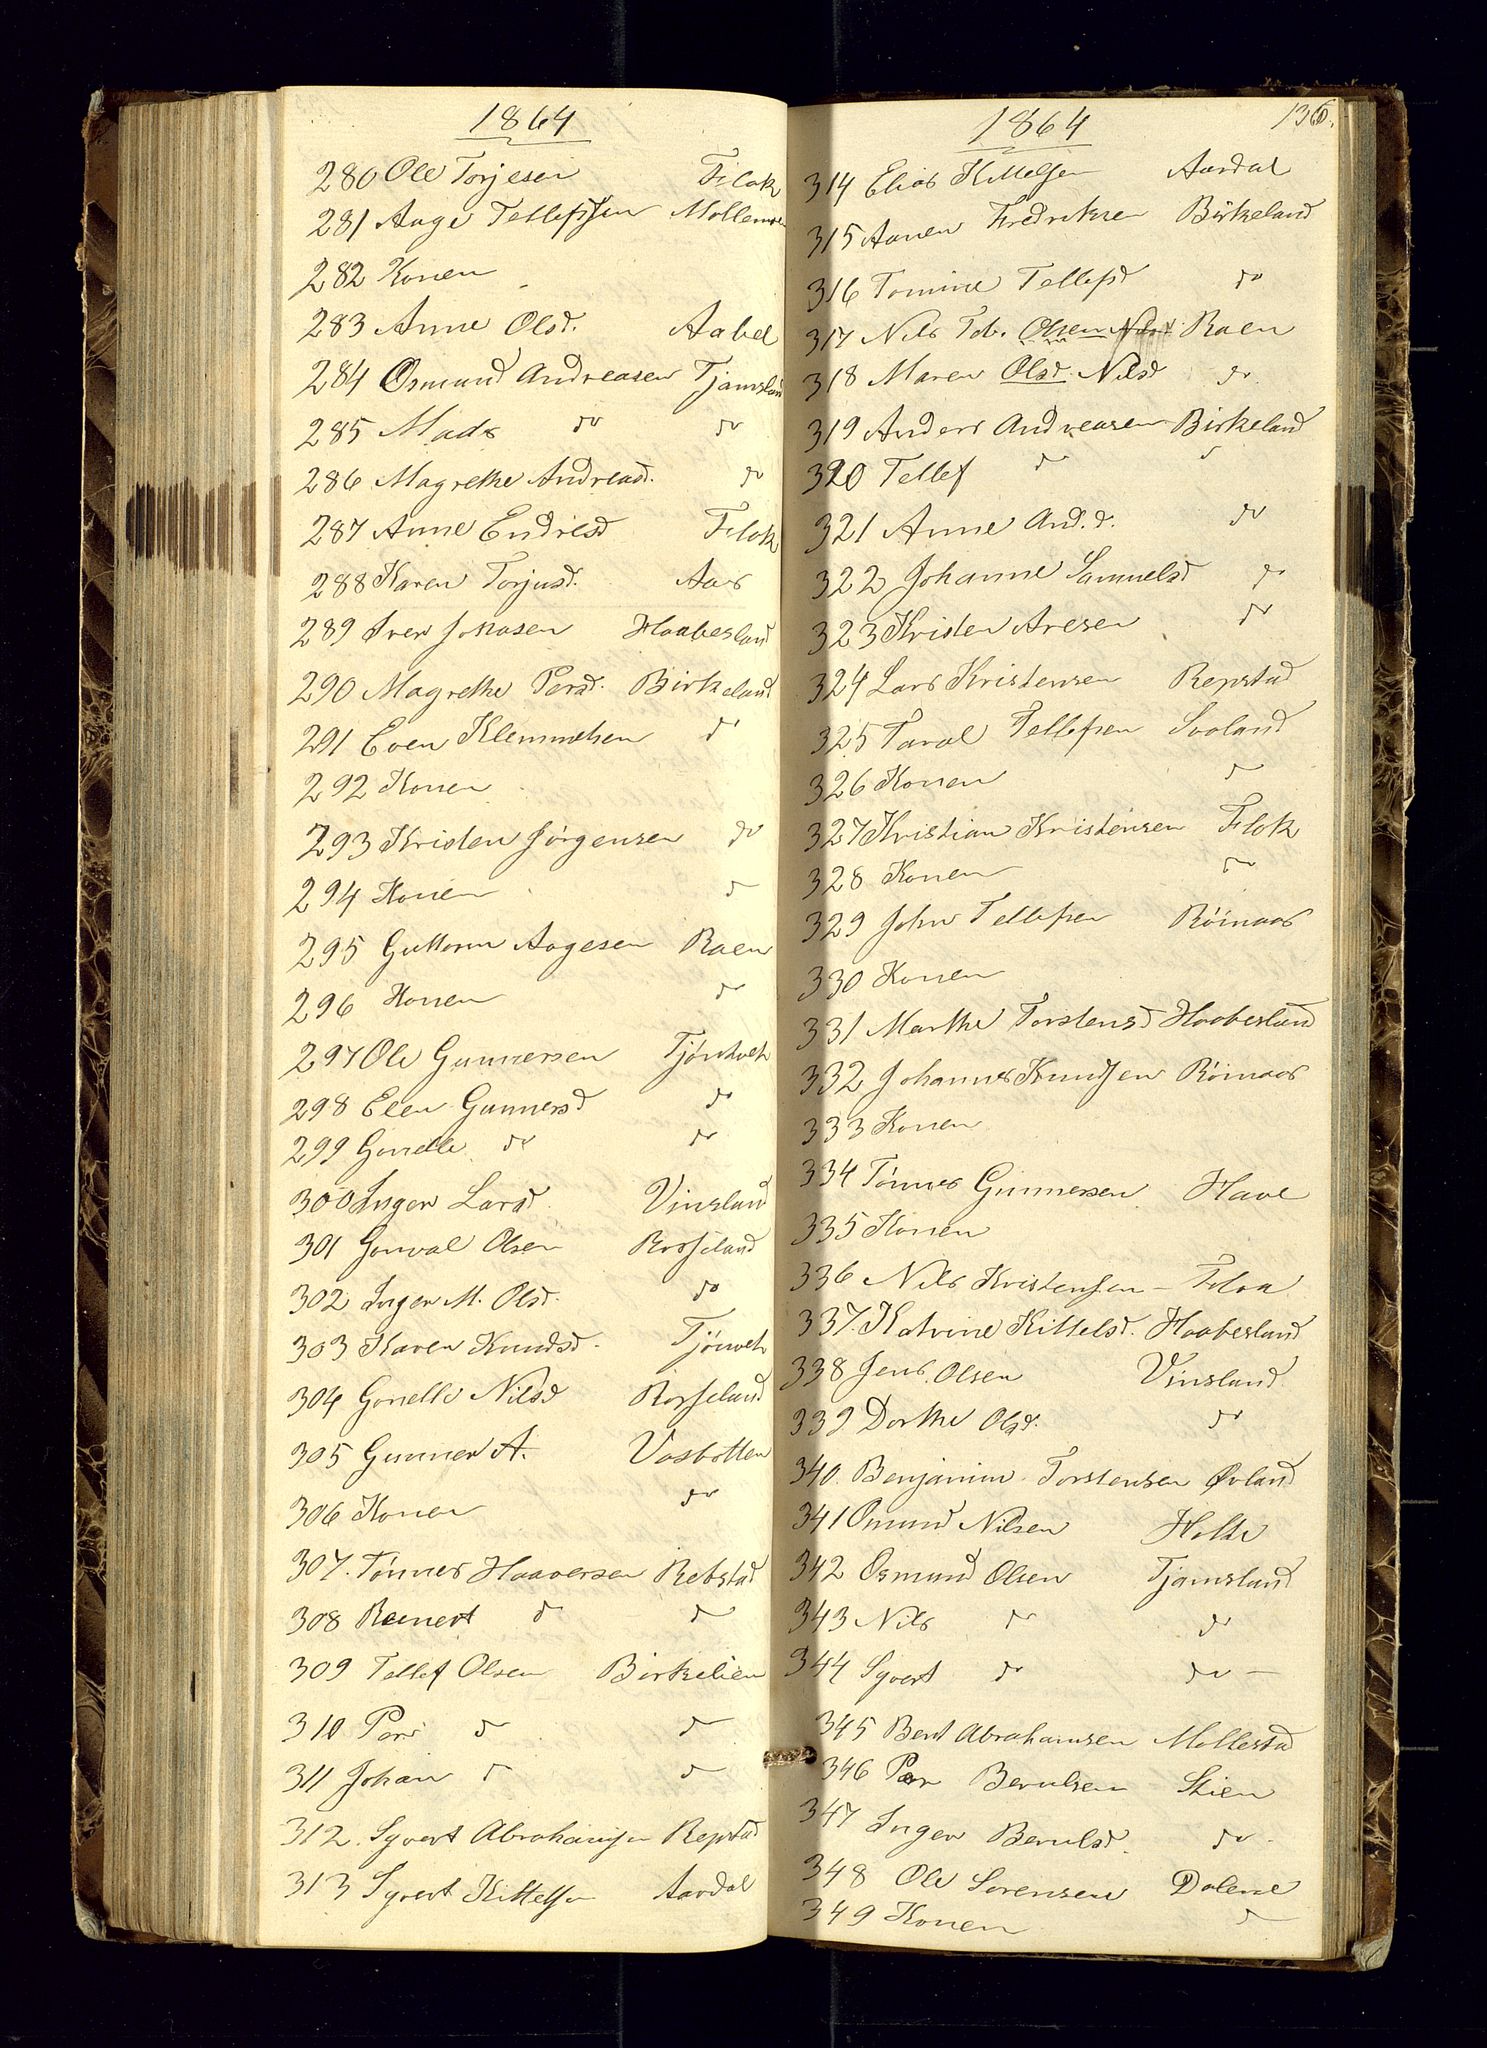 1864
280 Ole Torjesen Flok
281 Aage Tellefssen Mollemoen
282 Konen
283 Anne Olsd. Aabel
284 Osmund Andreasen Tjamsland
285 Mads do do
286 Magrethe Andreasd. do
287 Anne Endresd Flok
288 Karen Torjusd. Aas
289 Iver Jonasen Haabesland
290 Magrethe Persd. Birkeland
291 Even Klemmetsen d
292 Konen
293 Kristen Jørgensen do
294 Konen d
295 Guttorm Aagesen Raen
296 Konen do
297 Ole Gunnersen
298 Elen Gunnersd do
299 Gonelle do do
300 Inger Larsd Vinsland
301 Gonval Olsen Rosseland
302 Inger M. Olsd. do
303 Karen Knudsd.
304 Gonelle Nilsd Rosseland
305 Gunner A. Vasbotten
306 Konen do
307. Tønnes Haaversen Rebstad
308 Reinert d d
309 Tellef Olsen Birkelien
310 Per d d
311 Johan d d
312. Syvert Abrahamsen Repstad
313 Syvert Kittelsen Aardal
1864
136.
314 Elias Kittelsen Aardal
315 Aanen Fredriksen Birkeland
316 Tomine Tellefsd do
317 Nils Tob. Olsen Raen
318 Maren Olsd Nilsd do
319 Anders Andreasen Birkeland
320 Tellef d d
321 Anne And.d. do
322 Johanne Samuelsd do
323 Kristen Aresen do
324 Lars Kristensen Repstad
325 Taral Tellefsen Svaland
326 Konen d
327 Kristian Kristensen Flok
328 Konen do
329 John Tellefsen Røinaas
330 Konen
331 Marthe Torstensd Haabesland
332 Johannes Knudsen Røinaas
333 Konen
334 Tønnes Gunnersen Haave
335 Konen
336 Nils Kristensen -
337. Katrine Kittelsd. Haabesland
338 Jens Olsen Vinsland
339 Dorthe Olsd. do
340. Benjamin Torstensen Øvland
341 Omund Nilsen Holte
342 Osmund Olsen Tjamsland
343 Nils do do
344 Syvert do do -
345 Bent Abrahamsen Mollestad
346 Per Berulsen Stien
347 Inger Berulsd. do
348 Ole Sorensen Dalene
349 Konen d